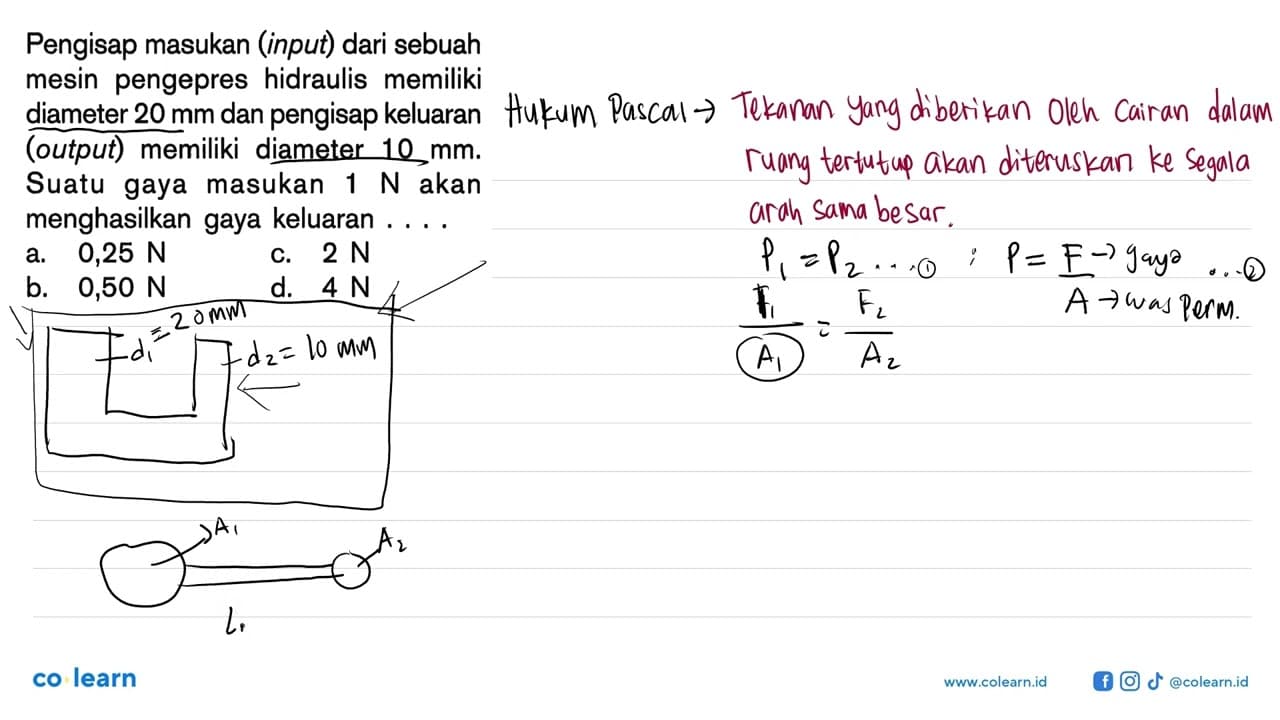 Pengisap masukan (input) dari sebuah
mesin pengepres hidraulis memiliki
diameter 20 mm dan pengisap keluaran
(output) memiliki diameter 10 mm.
Suatu gaya masukan 1 N akan
menghasilkan gaya keluaran . . . .
a. 0,25 N c. 2 N
b. 0,50 N d. 4 N
Hukum Pascal → Tekanan yang diberikan oleh cairan dalam
ruang tertutup akan diteruskan ke segala
arah sama besar.
P₁ = P₂ ... ① ; P = F → gaya ... ②
A → luas perm.
F₁ = F₂
A₁ A₂
d₁ = 20 mm
d₂ = 10 mm
A₁
A₂
L₁
co learn
www.colearn.id
@colearn.id